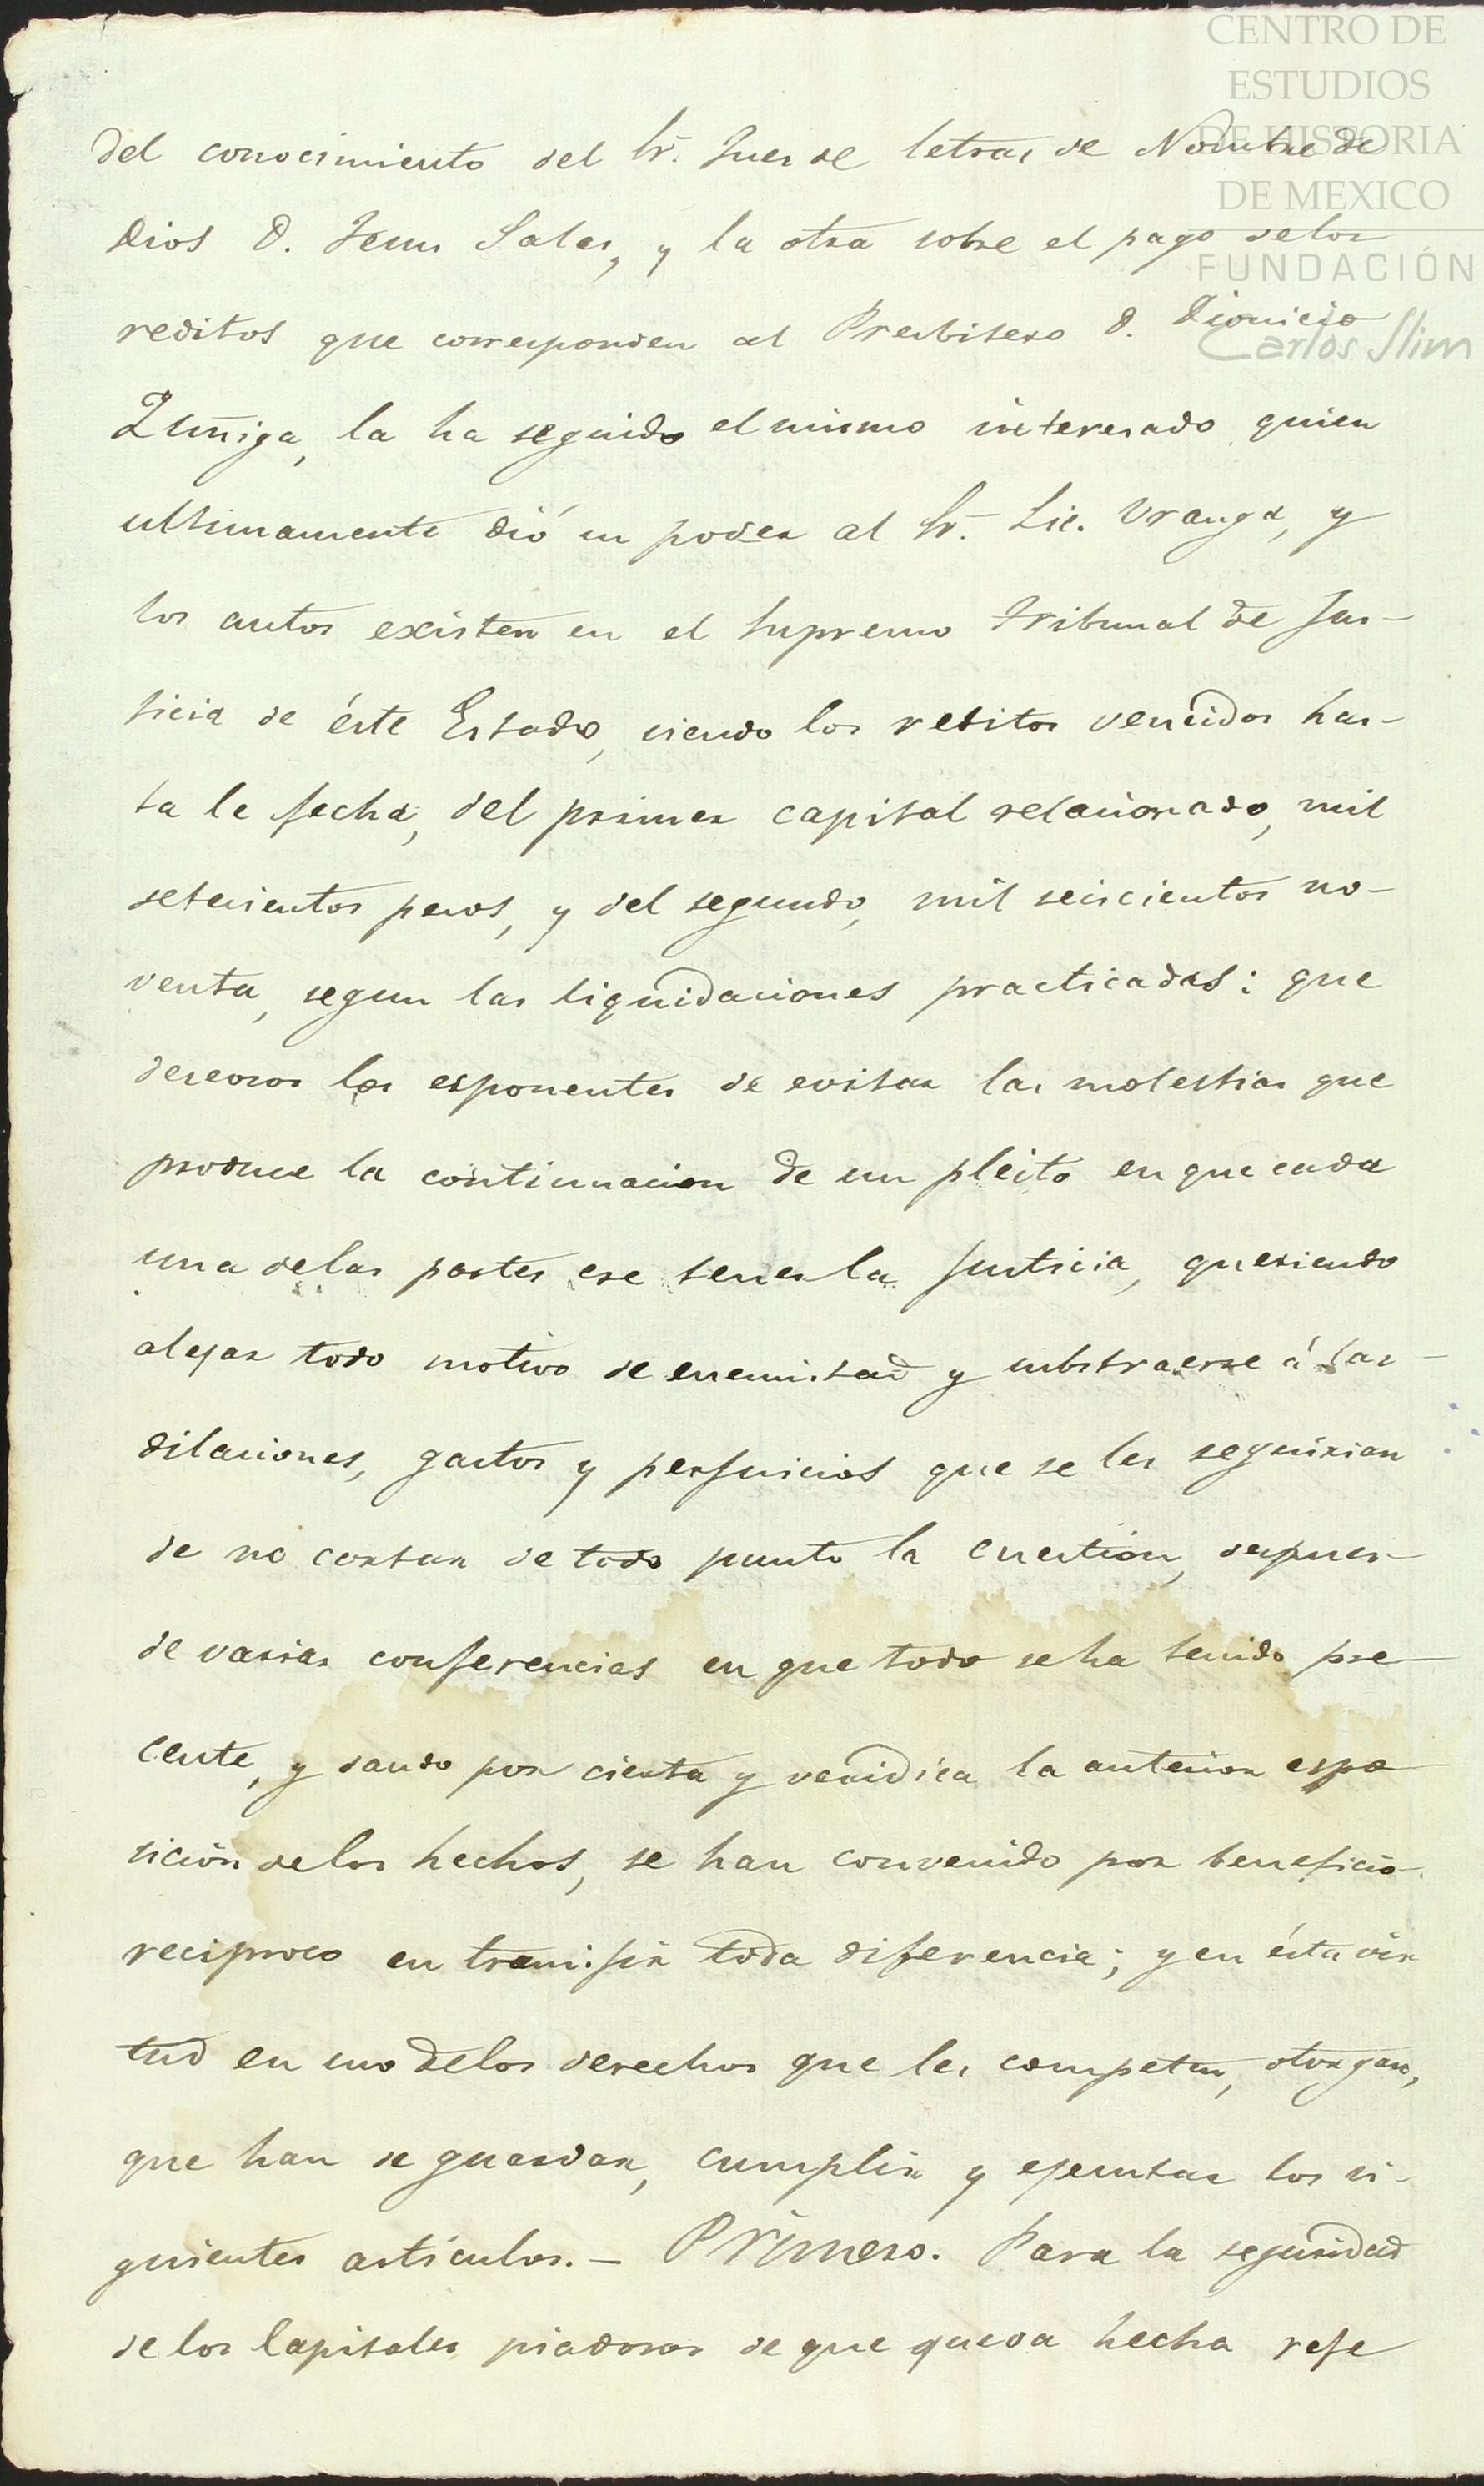 CENTRO DE
ESTUDIOS
DE HISTORIA
DE MEXICO
FUNDACIÓN
Carlos Slim
del conocimiento del Sr. Juez de letras de Nombre de
Dios D. Jesus Sales, y la otra sobre el pago delos
reditos que corresponden al Presbitero D. Dionicio
Zuñiga, la ha seguido el mismo interesado quien
ultimamente dió su poder al Sr. Lic. Uranga, y
los autos existen en el Supremo tribunal de Jus-
ticia de éste Estado, siendo los reditos vencidos has-
ta la fecha, del primer capital relacionado, mil
setecientos pesos, y del segundo, mil seiscientos no-
venta, segun las liquidaciones practicadas: que
deseosos los esponentes de evitar las molestias que
produce la continuacion de un pleito en que cada
una delas partes cre tener la justicia, queriendo
alejar todo motivo de enemistad y substraerse á las
dilaciones, gastos y perjuicios que se les seguirian
de no cortar de todo punto la cuestion, despues
de varias conferencias en que todo se ha tenido pre
cente, y dando por cierta y veridica la anterior espo
sición delos hechos, se han convenido por beneficio
reciproco en transijir toda diferencia; y en ésta vir
tud en uso delos derechos que les competen, otorgan,
que han de guardar, cumplir y ejecutar los si-
guientes artículos.- Primero. Para la seguridad
de los Capitales piadosos de que queda hecha refe